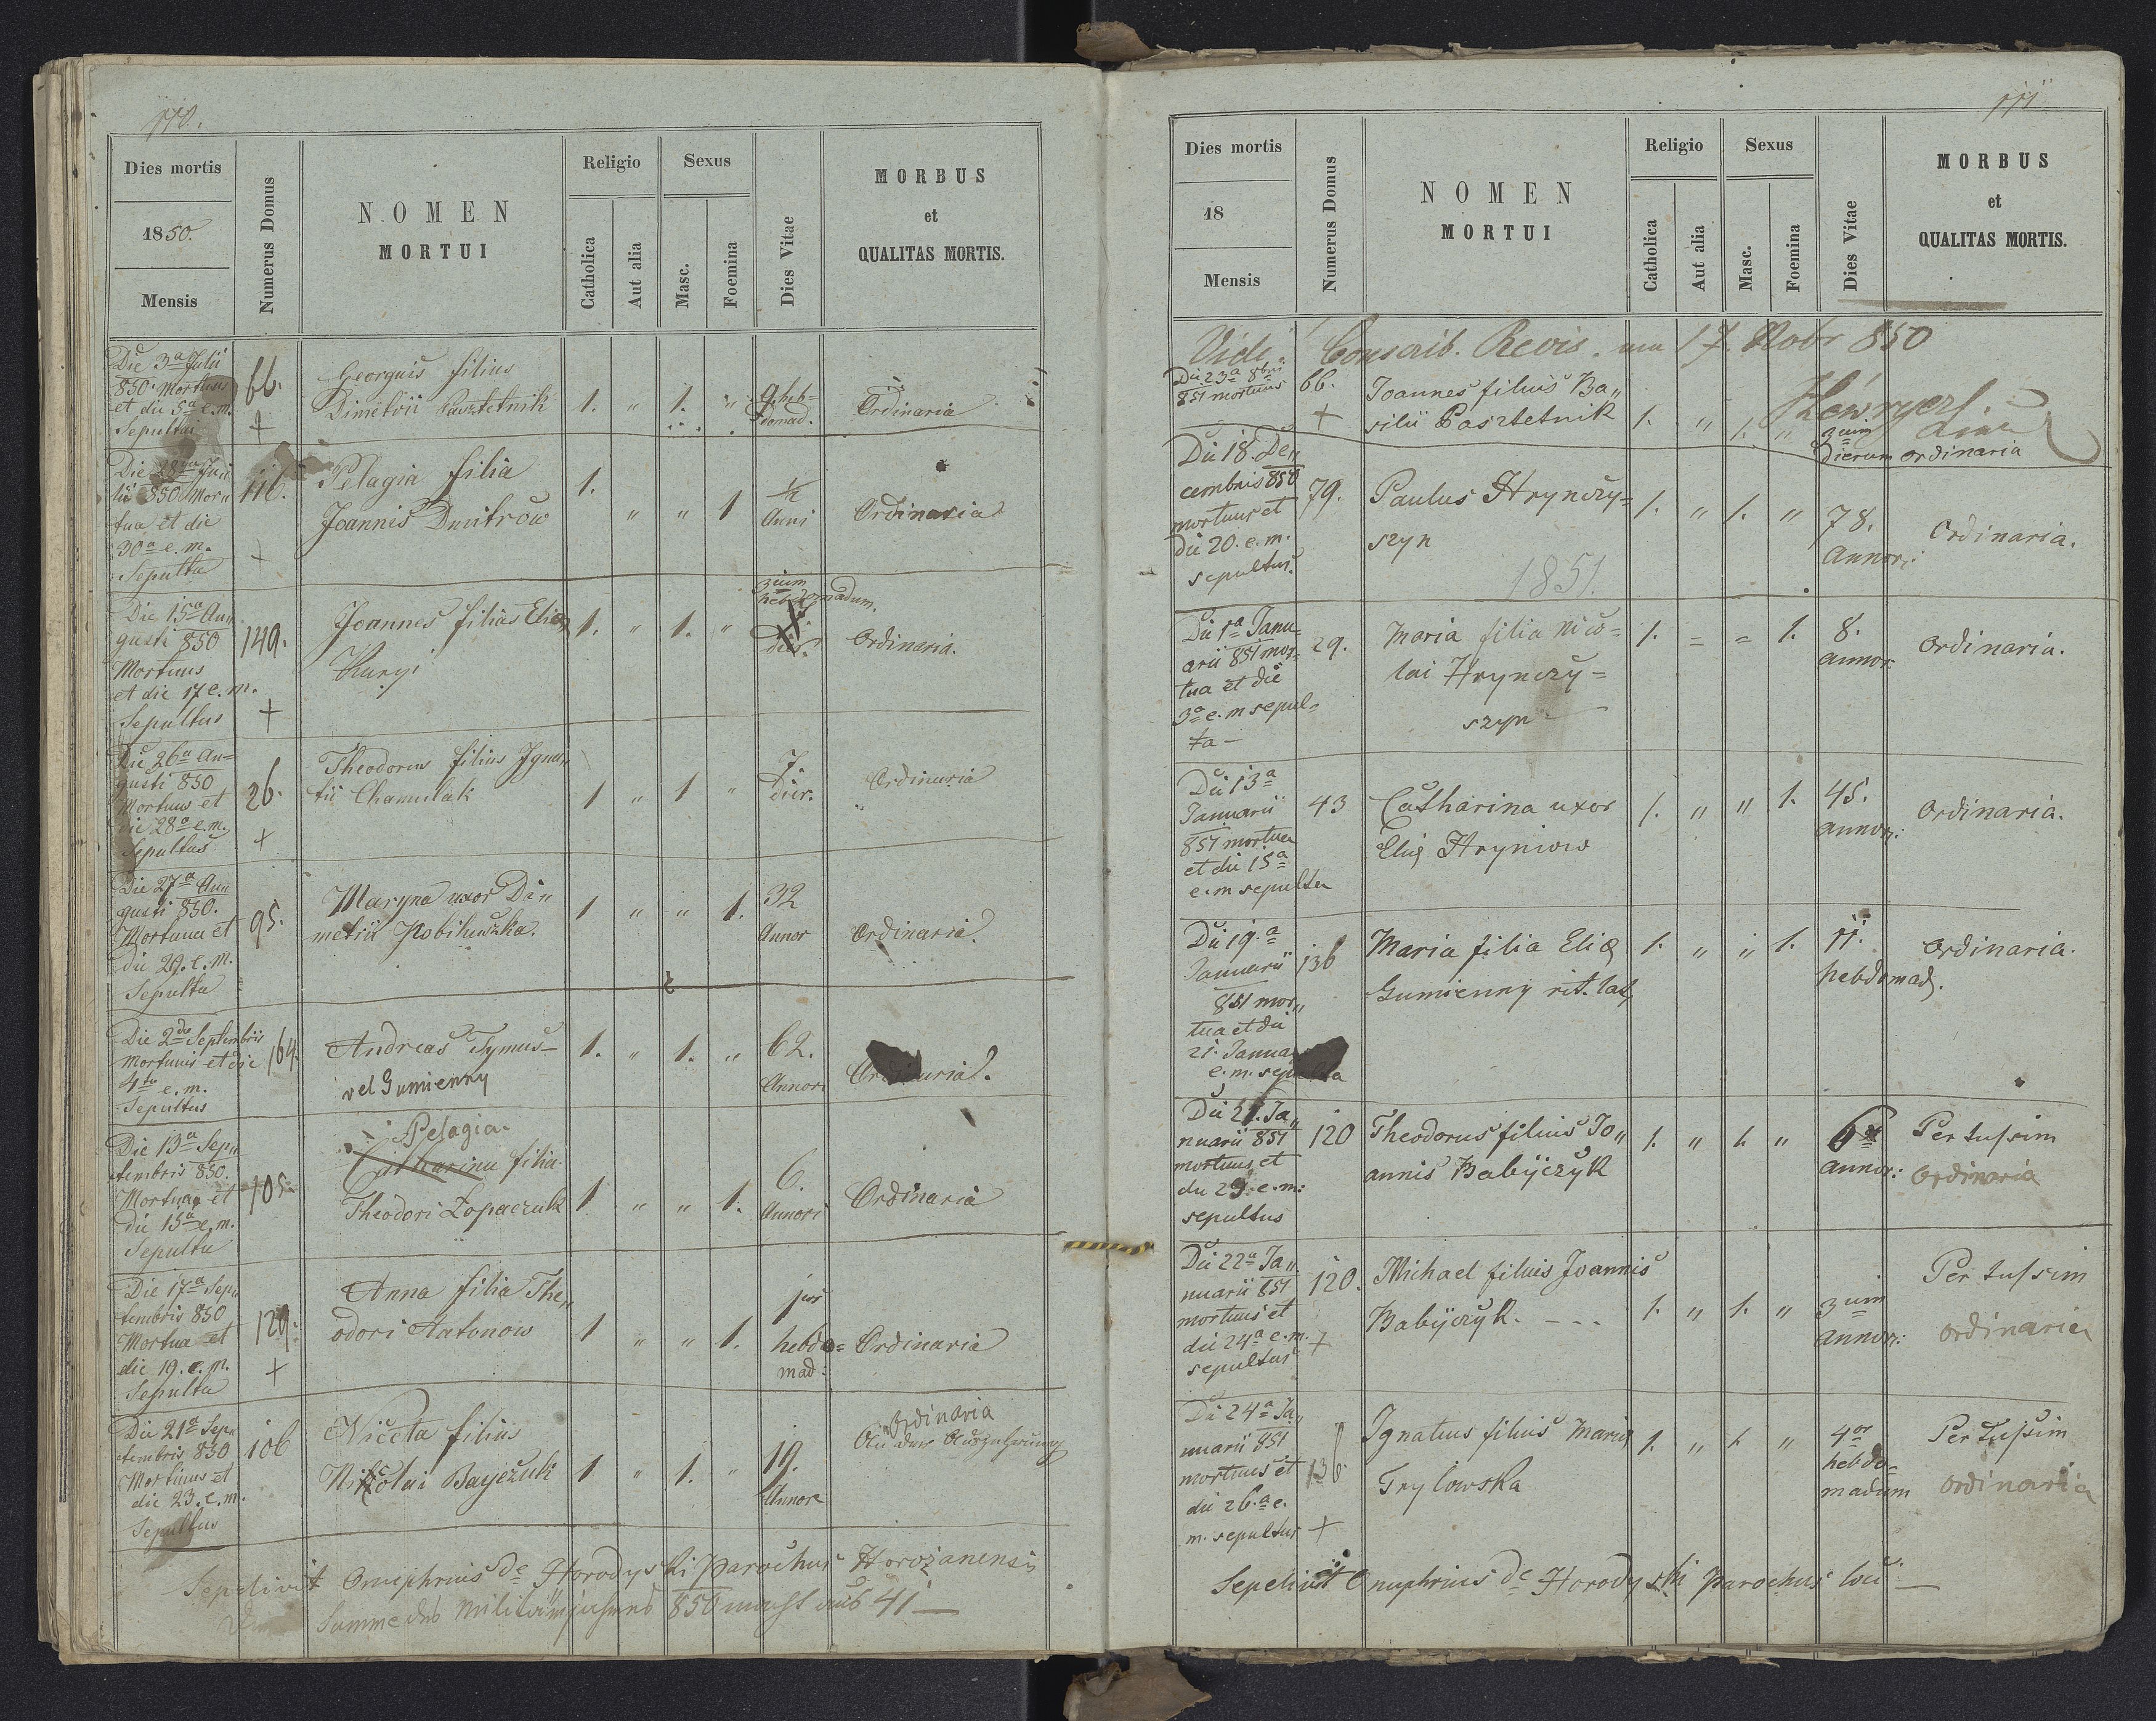 170.
Dies mortis
1850.
Mensis
Numerus Domus
NOMEN
MORTUI
Religio
Catholica
Aut alia
Sexus
Masc.
Foemina
Dies Vitae
MORBUS
et
QUALITAS MORTIS.
Die 3a Julii
850 Mortuus
et die 5a e.m.
Sepultus
66.
+
Georgius filius
Dimetrii Pasztetnik
1. " 1. "
9. heb-
domad.
Ordinaria
Die 28va Ju
lii 850 Mor
tua et die
30a e.m.
Sepulta
116.
+
Pelagia filia
Joannis Dmitrow
1. " " 1
1/2
Anni
Ordinaria
Die 15a Au"
gusti 850
Mortuus
et die 17 e.m.
Sepultus
149.
+
Joannes filius Eliæ
1. " 1. "
3ium
hebdomadum.
Ordinaria.
Die 26a Au=
gusti 850
Mortuus et
die 28a e.m.
Sepultus
26.
+
Theodorus filius Igna"
tii Chamulak
1 " 1 "
7.
dier.
Ordinaria
Die 27a Au"
gusti 850.
Mortua et
die 29. e.m.
Sepulta
95.
Maryna uxor Di"
metrii Kobiluszka.
1 " " 1.
32
Annor
Ordinaria.
Die 2da Septembris
Mortuus et die
4ta e.m.
Sepultus
164.
Andreas Tymus-
vel Gumienny
1. " 1. "
62.
Annor:
Ordinaria.
Die 13a Sep"
tembris 850.
Mortua et
die 15a e.m.
Sepulta
105.
Pelagia.
Catharina filia
Theodori Łopaczuk
1 " " 1.
6.
Annor:
Ordinaria
Die 17a Sep"
tembris 850
Mortua et
die 19. e.m.
Sepulta
129.
+
Anna filia The"
odori Antonow
1 " " 1.
hebdo=
mad:
Ordinaria
Die 21a Sep"
tembris 850
Mortuus et
die 23. e.m.
Sepultus
106
Niceta filius
Nikolai Bayczuk
1 " 1. "
19.
Annor
Ordinaria
An der Auszehrung
Sepelivit Onuphrius de Horodyski parochus Horożanensis
Summe des Militärjahres 850 macht aus 41 —
171
Dies mortis
18
Mensis
Numerus Domus
NOMEN
MORTUI
Religio
Catholica
Aut alia
Sexus
Masc.
Foemina
Dies Vitae
MORBUS
et
QUALITAS MORTIS.
Vidi. Conscrib. Revis. am 17 Nobr 850
Die 23a 8bris
851 mortuus
66.
+
Joannes filius Ba"
silii Pasztetnik
1. " 1. "
3um
dierum
ordinaria
Die 18. De"
cembris 850
mortuus et
die 20. e.m.
sepultus.
79.
Paulus Hrynczy=
szyn
1. " 1. "
78.
Annor:
Ordinaria.
1851.
Die 1a Janu=
arii 851 mor=
tua et die
3a e.m sepul=
ta —
29.
Maria filia Nico=
lai Hrynczy=
szyn
1. = = 1.
8.
annor:
Ordinaria.
Die 13a
Januarii
851 mortua
et die 15a
e.m sepulta
43
Catharina uxor
Eliæ Hryniow
1. " " 1.
45.
annor:
Ordinaria.
Die 19.a
Januarii
851 mor"
tua et die
21. Januar
e.m. sepulta
136
Maria filia Eliæ
Gumienny rit. lat.
1. " " 1.
11.
hebdomad.
ordinaria.
Die 21. Ja"
nuarii 851
mortuus et
die 23 e.m:
sepultus
120
Theodorus filius Jo"
annis Babijczyk
1. " 1. "
6
annor:
Per tussim
ordinaria
Die 22a Ja"
nuarii 851
mortuus et
die 24a e.m.
sepultus
120.
+
Michael filius Joannis
Babijczyk. - - -
1. " 1. "
3um
annor:
Per tussim
ordinaria
Die 24a Ja"
nuarii 851
mortuus et
die 26.a e.
m. sepultus
136.
+
Ignatius filius Mariæ
Trylowska
1. " 1. "
4or
hebdo=
madum
Per tussim
ordinaria
Sepelivit Onuphrius de Horodyski parochus loci —